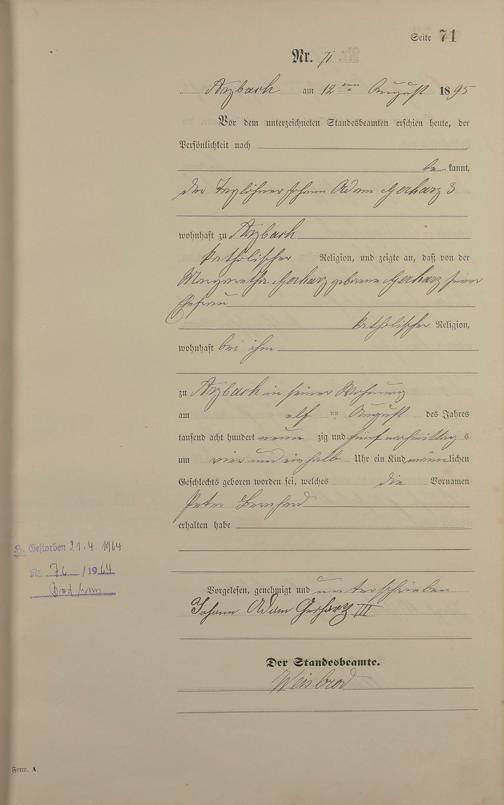 Seite 71
Nr. 71
Arzbach am 12ten August 1895
Vor dem unterzeichneten Standesbeamten erschien heute, der
Persönlichkeit nach
be kannt,
der Taglöhner Johann Adam Gerharz 3
wohnhaft zu Arzbach
katholischer Religion, und zeigte an, daß von der
Margaretha Gerharz geborene Gerharz seiner
Ehefrau
katholischer Religion,
wohnhaft bei ihm
zu Arzbach in seiner Wohnung
am elf ten August des Jahres
tausend acht hundert neun zig und fünf nachmittag s
um vier und einhalb Uhr ein Kind männlichen
Geschlechts geboren worden sei, welches die Vornamen
Peter Bernhard
erhalten habe
Gestorben 21.4 1964
Nr. 76 / 1964
Bad Ems
Vorgelesen, genehmigt und unterschrieben
Johann Adam Gerharz III
Der Standesbeamte.
Weisbrod
Form. A